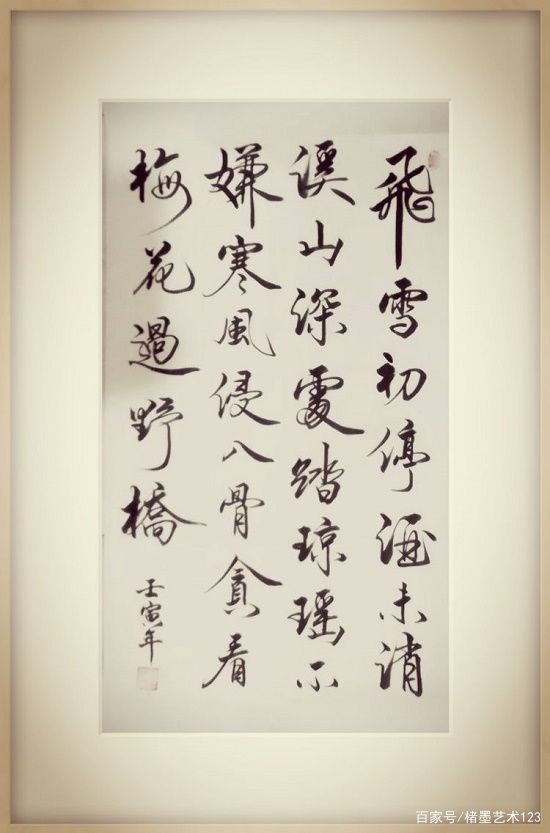 飛雪初停酒未消
溪山深處踏琼瑶不
嫌寒風侵入骨貪看
梅花過野橋
壬寅年
百家号/楮墨艺术123